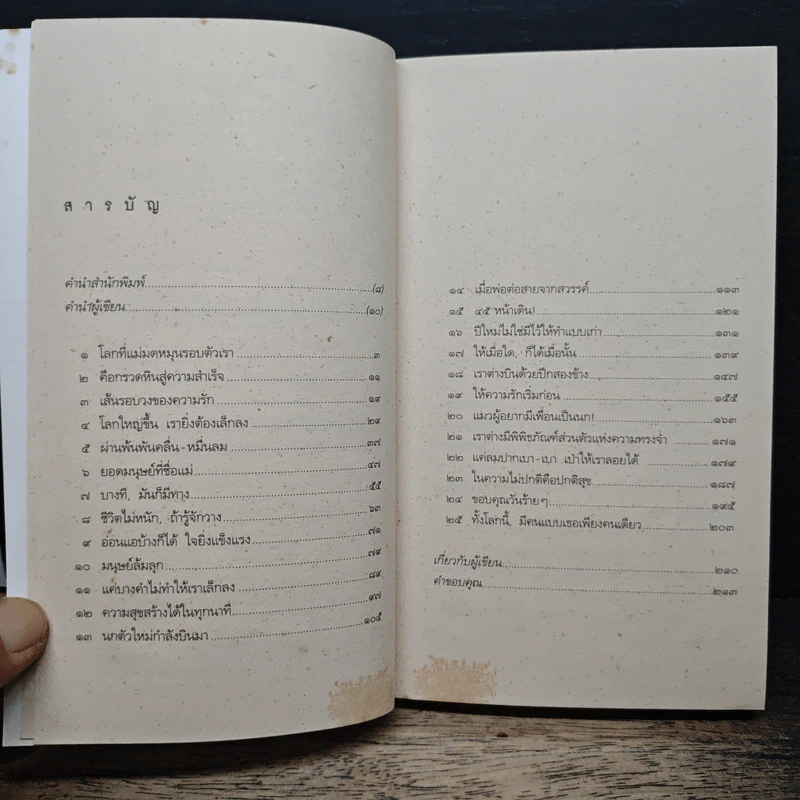 สารบัญ
คำนำสำนักพิมพ์ (๘)
คำนำผู้เขียน (๑๐)
๑ โลกที่แม่มดหมุนรอบตัวเรา ๓
๒ คือกรวดหินสู่ความสำเร็จ ๑๑
๓ เส้นรอบวงของความรัก ๑๙
๔ โลกใหญ่ขึ้น เรายิ่งต้องเล็กลง ๒๙
๕ ผ่านพ้นพันคลื่น-หมื่นลม ๓๗
๖ ยอดมนุษย์ที่ชื่อแม่ ๔๗
๗ บางที, มันก็มีทาง ๕๕
๘ ชีวิตไม่หนัก, ถ้ารู้จักวาง ๖๓
๙ อ่อนแอบ้างก็ได้ ใจยิ่งแข็งแรง ๗๑
๑๐ มนุษย์ล้มลุก ๗๙
๑๑ แค่บางคำไม่ทำให้เราเล็กลง ๘๙
๑๒ ความสุขสร้างได้ในทุกนาที ๙๗
๑๓ นกตัวใหม่กำลังบินมา ๑๐๕
๑๔ เมื่อพ่อต่อสายจากสวรรค์ ๑๑๓
๑๕ ๔๕ หน้าเดิน! ๑๒๑
๑๖ ปีใหม่ไม่ใช่มีไว้ให้ทำแบบเก่า ๑๓๑
๑๗ ให้เมื่อใด, ก็ได้เมื่อนั้น ๑๓๙
๑๘ เราต่างบินด้วยปีกสองข้าง ๑๔๗
๑๙ ให้ความรักเริ่มก่อน ๑๕๕
๒๐ แมวผู้อยากมีเพื่อนเป็นนก! ๑๖๓
๒๑ เราต่างมีพิพิธภัณฑ์ส่วนตัวแห่งความทรงจำ ๑๗๑
๒๒ แค่ลมปากเบา-เบา เป่าให้เราลอยได้ ๑๗๙
๒๓ ในความไม่ปกติคือปกติสุข ๑๘๗
๒๔ ขอบคุณวันร้ายๆ ๑๙๕
๒๕ ทั้งโลกนี้, มีคนแบบเธอเพียงคนเดียว ๒๐๓
เกี่ยวกับผู้เขียน ๒๑๐
คำขอบคุณ ๒๑๓